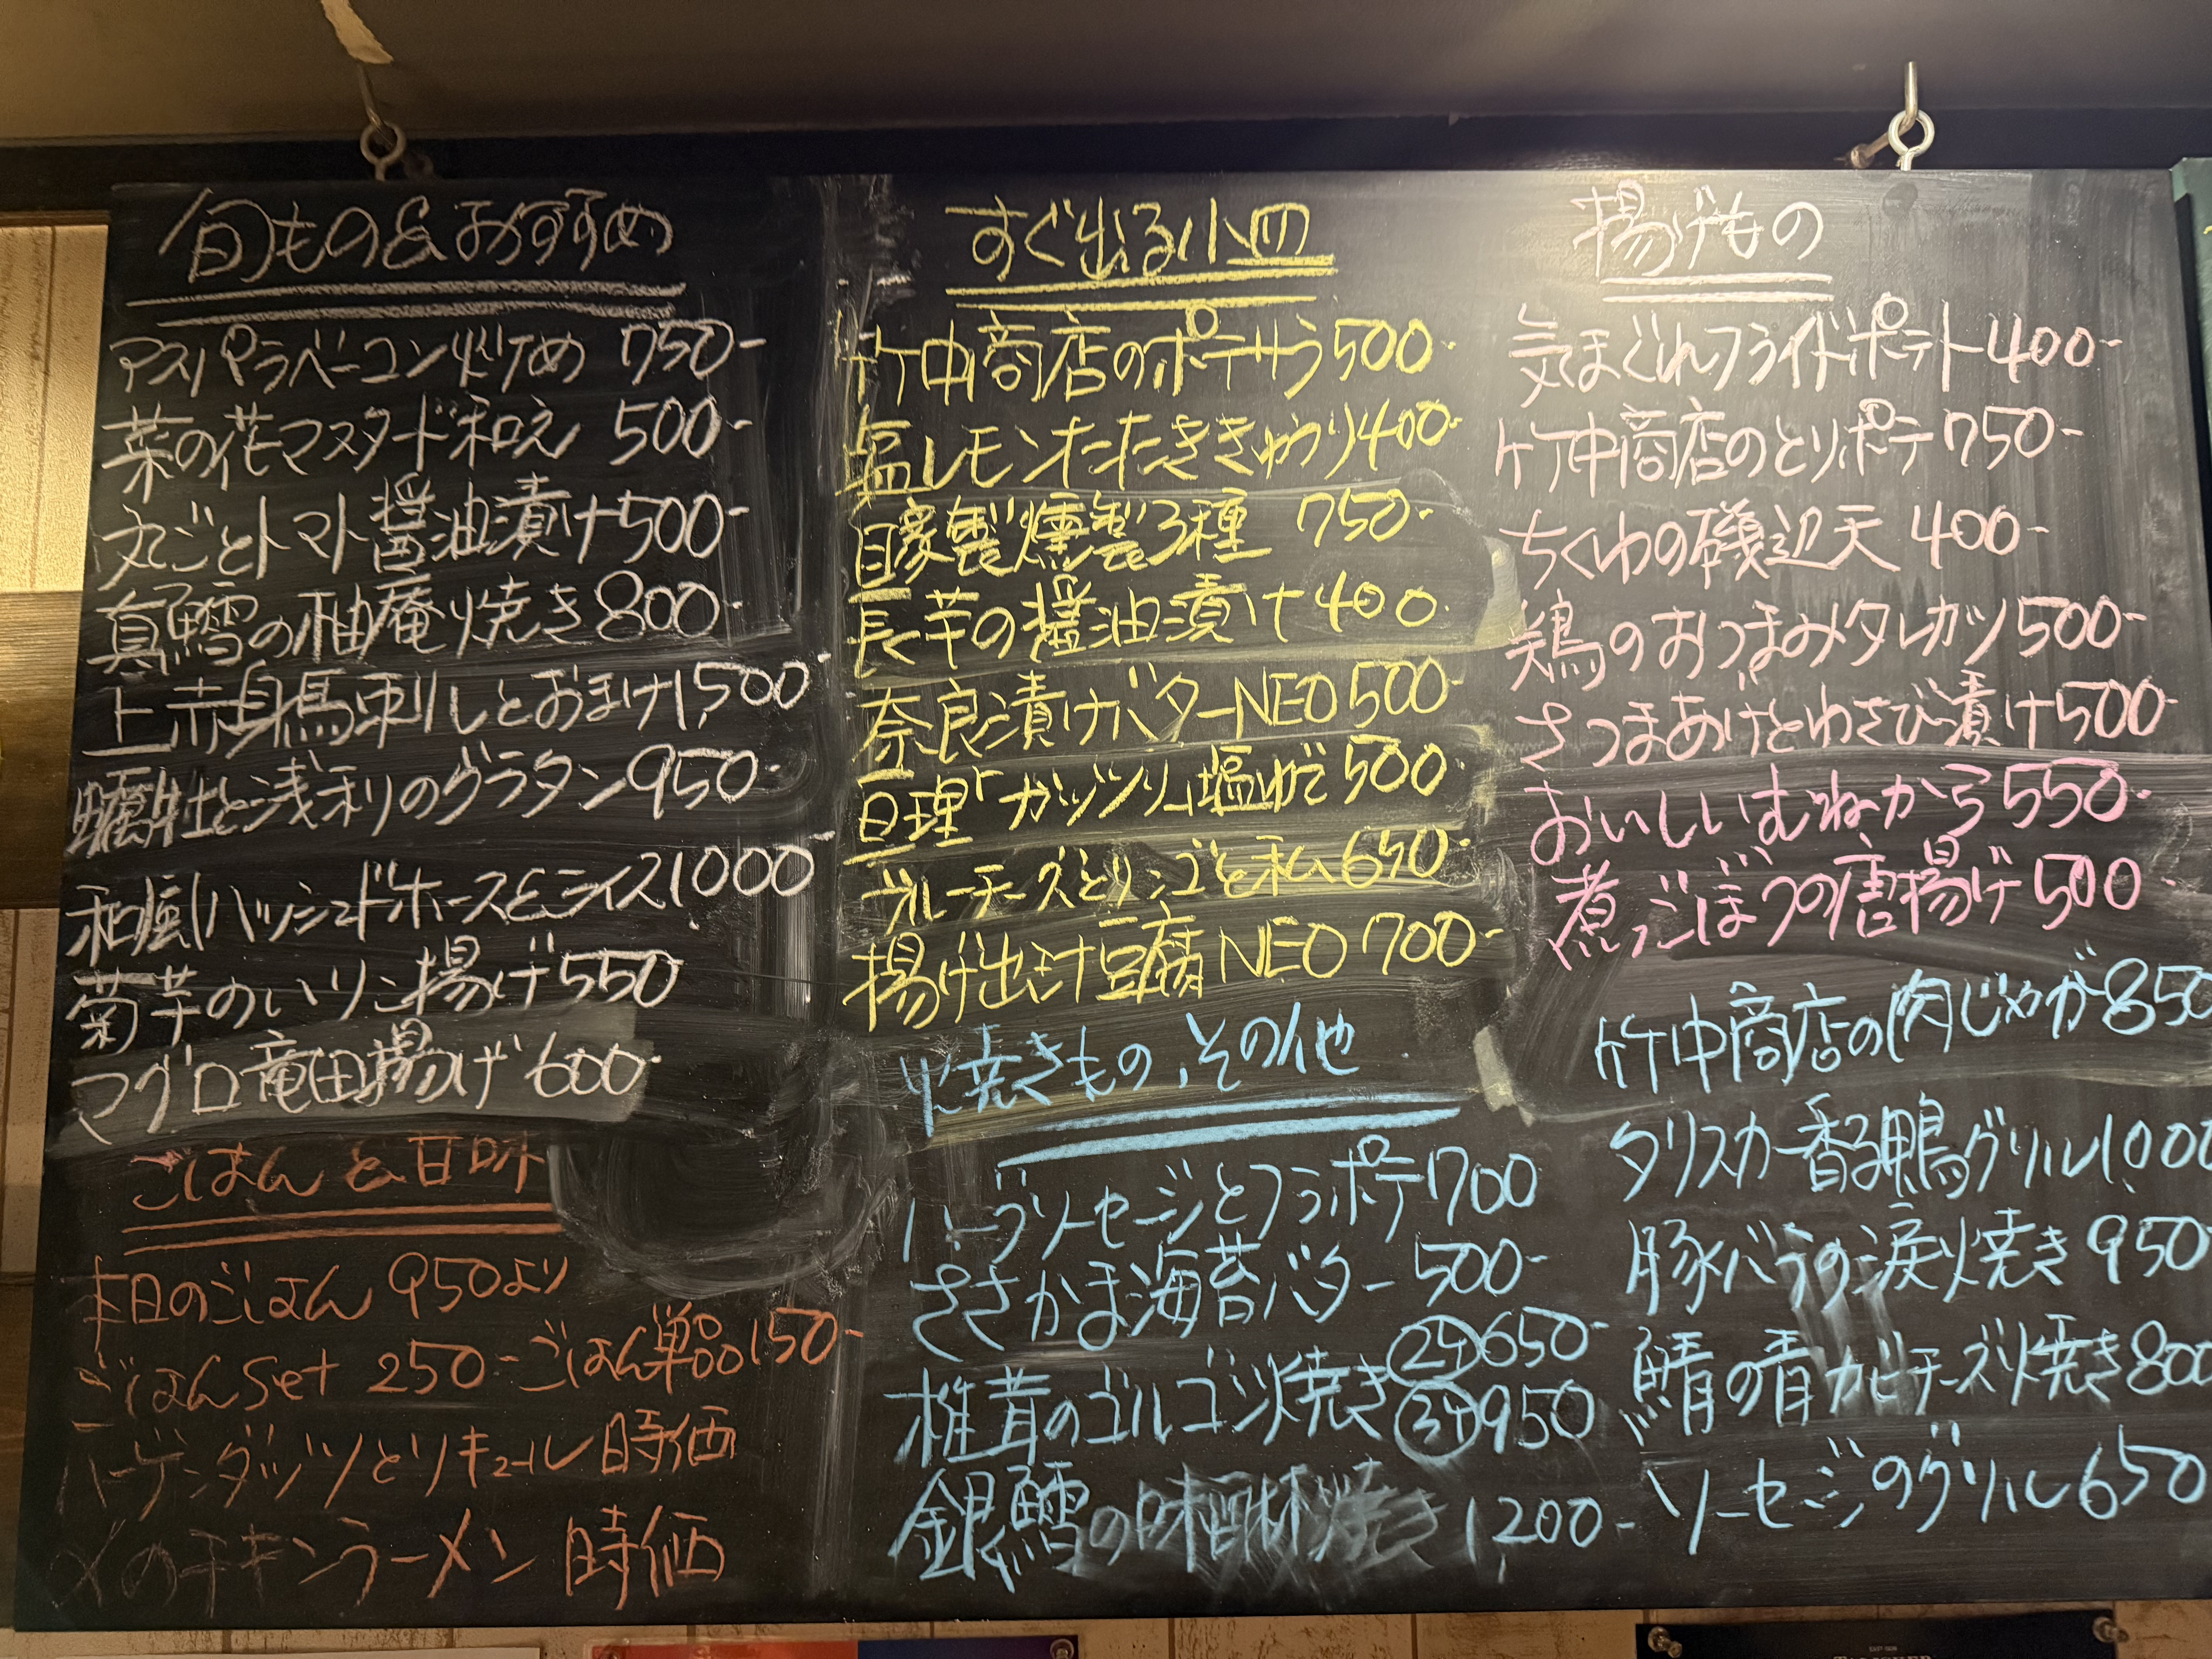 旬もの&おすすめ
アスパラベーコン炒め 750-
菜の花マスタード和え 500-
丸ごとトマト醤油漬け500-
真鱈の柚庵焼き800-
上赤身馬刺しとおまけ1,500-
牡蠣と浅利のグラタン950-
和風ハッシュドホース&ライス1000
菊芋のいりこ揚げ550
マグロ竜田揚げ600-
ごはん&甘味
本日のごはん 950より
ごはんSet 250- ごはん単品150-
ハーゲンダッツとリキュール 時価
〆のチキンラーメン 時価
すぐ出る小皿
竹中商店のポテサラ500-
塩レモンたたききゅうり400-
自家製燻製3種 750-
長芋の醤油漬け400-
奈良漬けバターNEO500-
亘理「ガッツリ」塩ゆで500-
ブルーチーズとリンゴと私650-
揚げ出汁豆腐NEO700-
焼きもの、その他
ハーブソーセージとフラポテ700
ささかま海苔バター500-
椎茸のゴルゴン焼き②ケ650-
③ケ950
銀鱈の味醂焼き 1,200-
揚げもの
気まぐれフライドポテト400-
竹中商店のとりポテ750-
ちくわの磯辺天 400-
鶏のおつまみタレカツ500-
さつまあげとわさび漬け500-
おいしいむねから550-
煮ごぼうの唐揚げ500-
竹中商店の肉じゃが850
タリスカー香る鴨グリル1,000
豚バラの涙焼き 950
鯖の青カビチーズ焼き800
ソーセージのグリル650